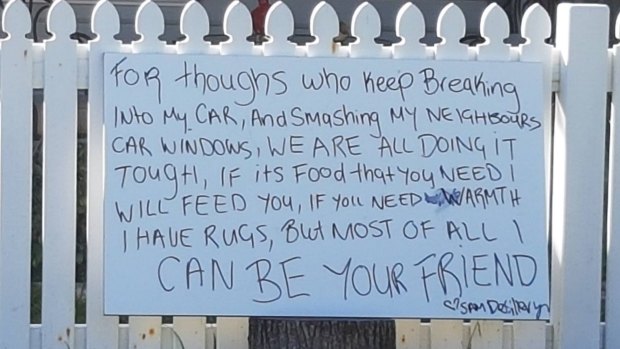 FOR thoughs who keep Breaking
INto My CAR, And Smashing MY NEIGHBOURS
CAR WINDOWS, WE ARE ALL DOING IT
TOUGH, IF its FOOD that you NEED I
WILL FEED YOU, IF YOU NEED WARMTH
I HAVE RUGS, BUt MOST OF ALL I
CAN BE YOUR FRIEND
SAM